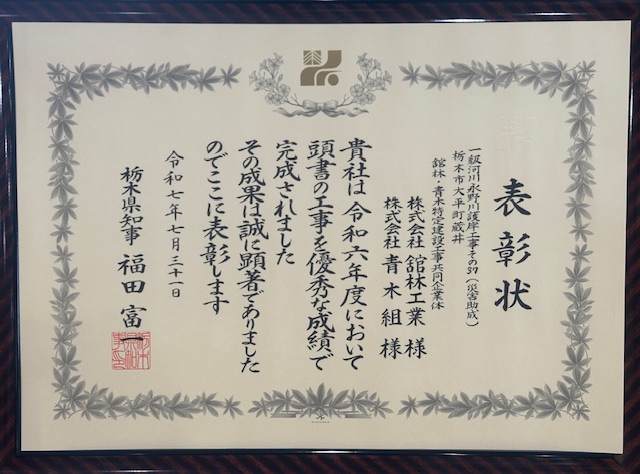 表彰状
一級河川永野川護岸工事その37(災害助成)
栃木市大平町蔵井
舘林・青木特定建設工事共同企業体
株式会社 舘林工業 様
株式会社 青木組 様
貴社は令和六年度において
頭書の工事を優秀な成績で
完成されました
その成果は誠に顕著でありました
のでここに表彰します
令和七年七月三十一日
栃木県知事 福田富一